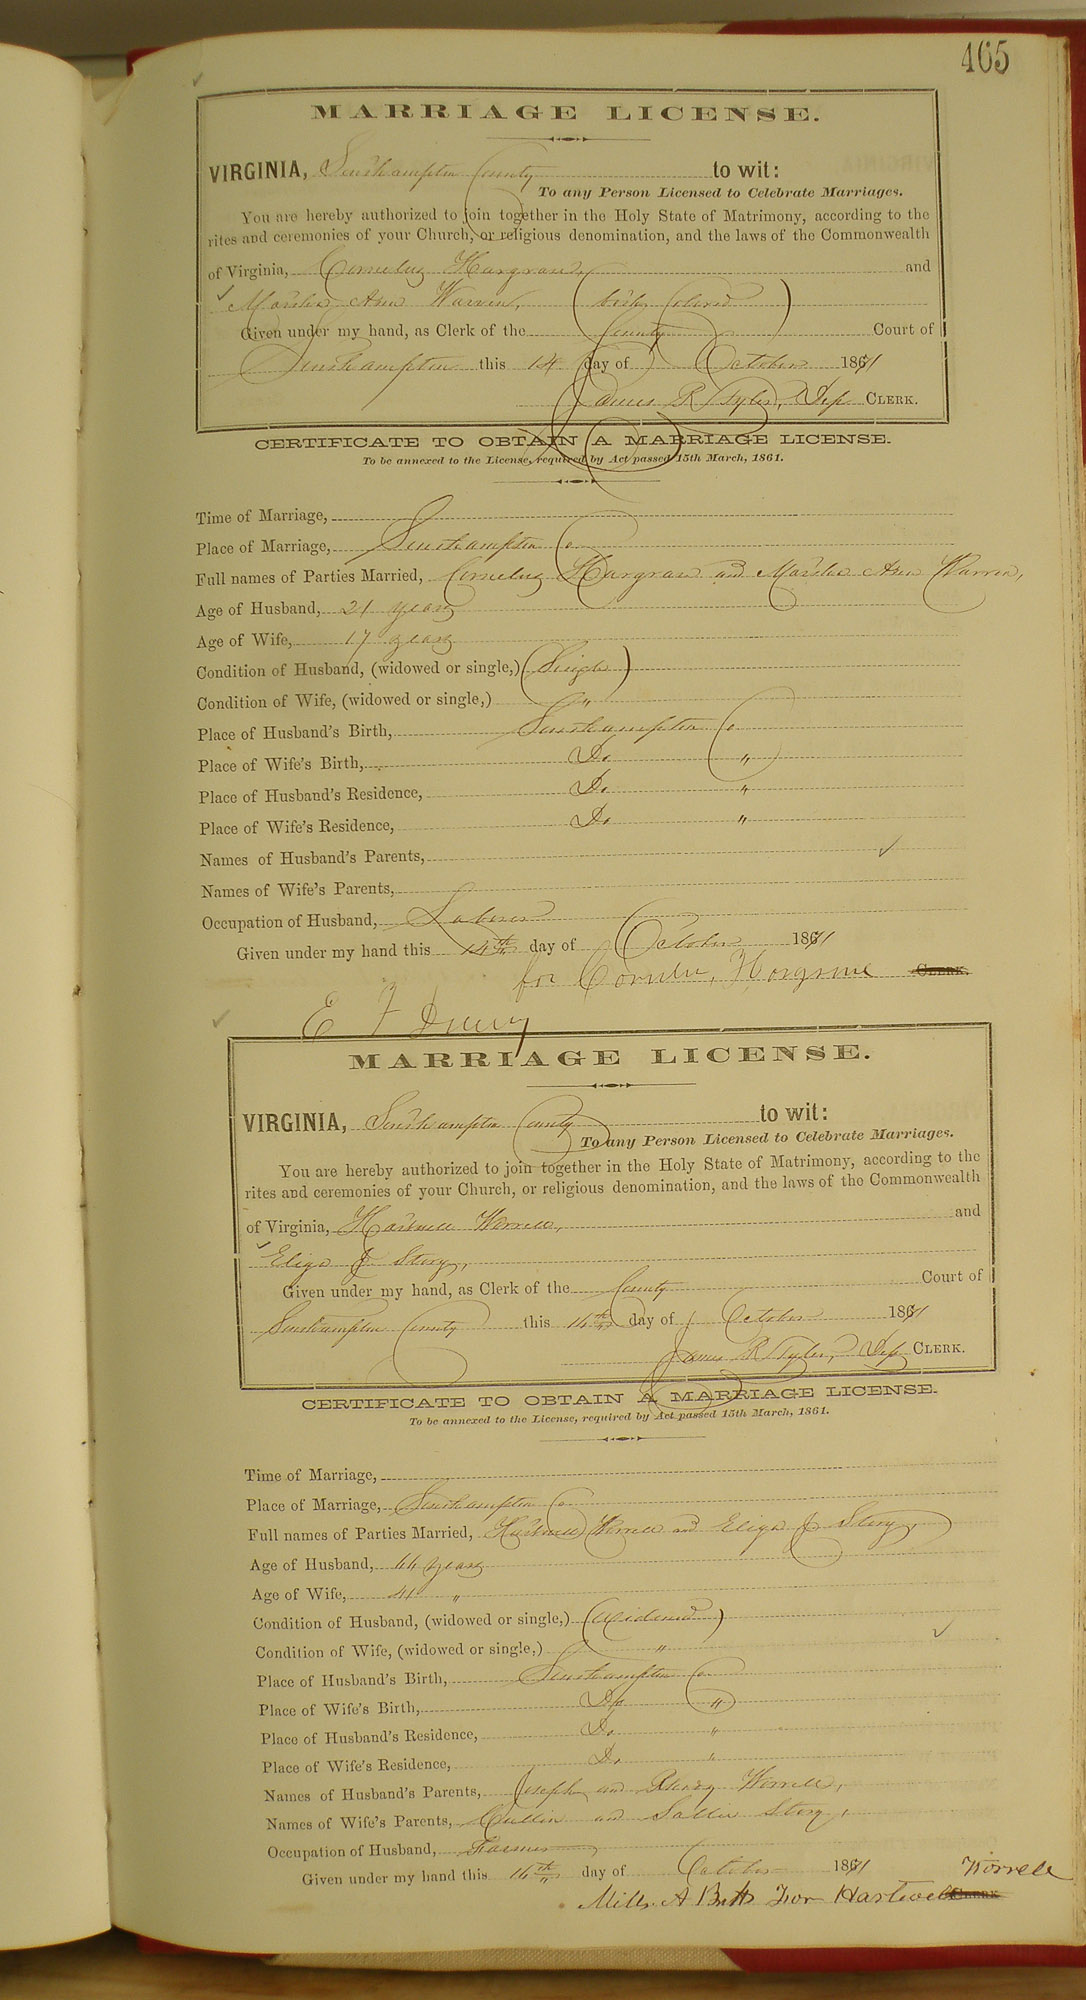 465
MARRIAGE LICENSE.
VIRGINIA, Southampton County to wit:
To any Person Licensed to Celebrate Marriages.
You are hereby authorized to join together in the Holy State of Matrimony, according to the
rites and ceremonies of your Church, or religious denomination, and the laws of the Commonwealth
of Virginia, Cornelius Hargrave, and
Ann Warren, (both Colored)
Given under my hand, as Clerk of the County Court of
Southampton this 14 day of October 1871
James R Tyler, Dep CLERK.
CERTIFICATE TO OBTAIN A MARRIAGE LICENSE.
To be annexed to the License, required by Act passed 15th March, 1861.
Time of Marriage,
Place of Marriage, Southampton Co
Full names of Parties Married, Cornelius Hargrave and Ann Warren,
Age of Husband, 21 years
Age of Wife, 17 years
Condition of Husband, (widowed or single,) (Single)
Condition of Wife, (widowed or single,) "
Place of Husband's Birth, Southampton Co
Place of Wife's Birth, Do "
Place of Husband's Residence, Do "
Place of Wife's Residence, Do "
Names of Husband's Parents,
Names of Wife's Parents,
Occupation of Husband, Laborer
Given under my hand this 14th day of October 1871
for Hargrave CLERK.
E F Drewry
MARRIAGE LICENSE.
VIRGINIA, Southampton County to wit:
To any Person Licensed to Celebrate Marriages.
You are hereby authorized to join together in the Holy State of Matrimony, according to the
rites and ceremonies of your Church, or religious denomination, and the laws of the Commonwealth
of Virginia, Hartwell Worrell, and
Eliza J Story,
Given under my hand, as Clerk of the County Court of
Southampton County this 16th day of October 1871
James R Tyler, Dep CLERK.
CERTIFICATE TO OBTAIN A MARRIAGE LICENSE.
To be annexed to the License, required by Act passed 15th March, 1861.
Time of Marriage,
Place of Marriage, Southampton Co
Full names of Parties Married, Hartwell Worrell and Eliza J Story,
Age of Husband, years
Age of Wife, 41 "
Condition of Husband, (widowed or single,) (Widowed)
Condition of Wife, (widowed or single,) "
Place of Husband's Birth, Southampton Co
Place of Wife's Birth, Do "
Place of Husband's Residence, Do "
Place of Wife's Residence, Do "
Names of Husband's Parents, Joseph and Worrell,
Names of Wife's Parents, Cullin and Sallie Story,
Occupation of Husband, Farmer
Given under my hand this 16th day of October 1871
Mills A Butts For Hartwell Worrell CLERK